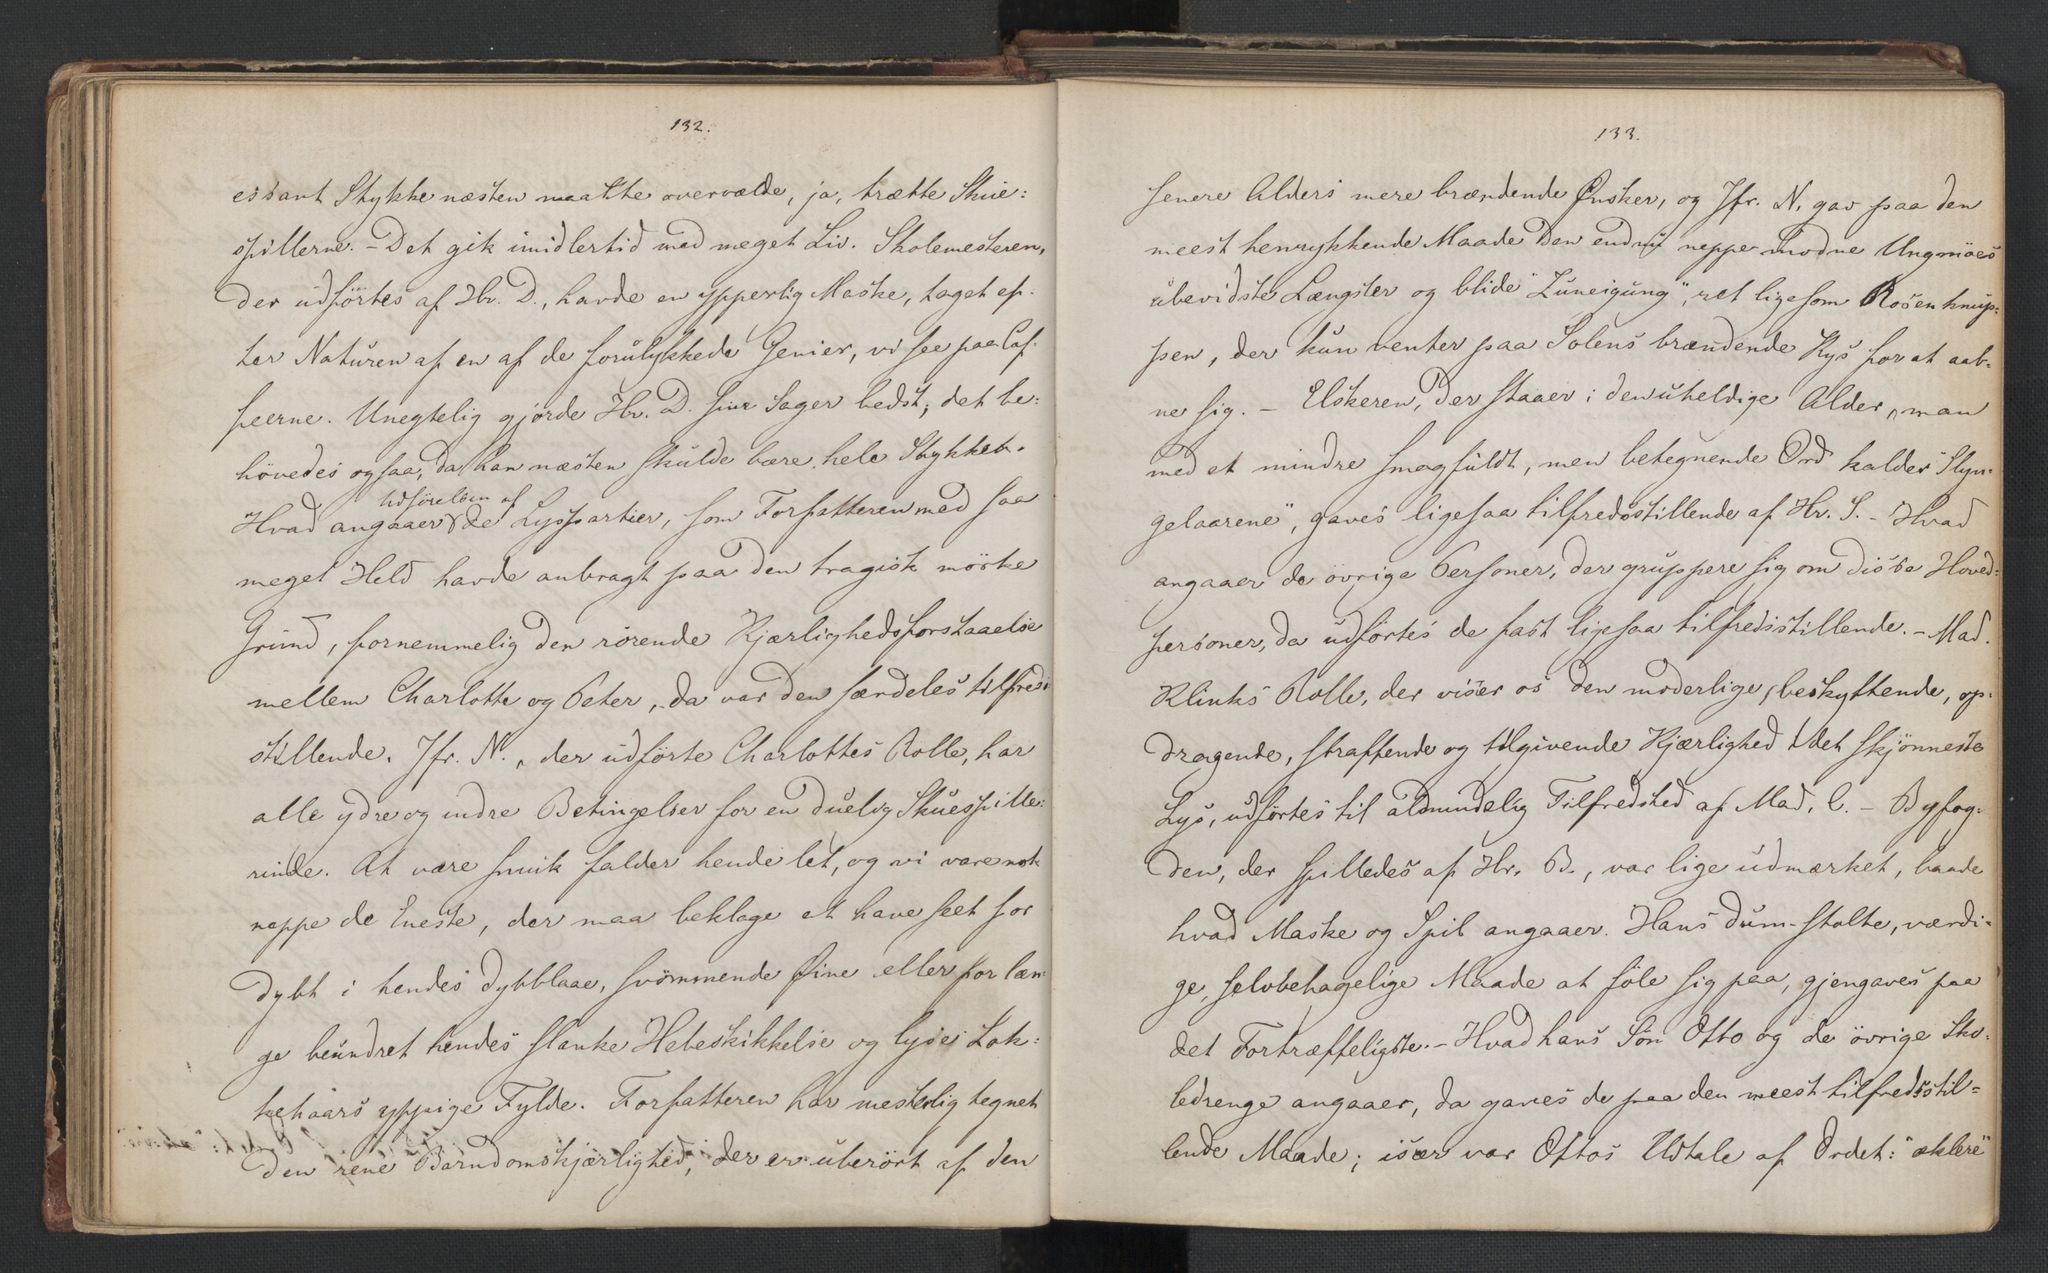 132.
essant Stykke næsten maatte overvælde, ja, trætte Skue=
spillerne. – Det gik imidlertid med meget Liv. Skolemesteren,
der udførtes af Hr. D., havde en ypperlig Maske, taget ef-
ter Naturen af en af de forulykkede Genier, vi see paa Caf-
feerne. Unegtelig gjorde Hr. D. sine Sager bedst; det be=
hövedes ogsaa, da han næsten skulde bære hele Stykket.
Udførelsen af
Hvad angaaer de Lyspartier, som Forfatteren med saa
meget Held havde anbragt paa den tragisk mörke
Grund, fornemmelig den rörende Kjærlighedsforstaaelse
mellem Charlotte og Peter, da var den særdeles tilfreds
stillende. Jfr. N., der udförte Charlottes Rolle, har
alle ydre og indre Betingelser for en duelig Skuespille=
rinde. At være smuk falder hende let, og vi vare nok
neppe de Eneste, der maa beklage at have seet for
dybt i hendes dybblaae, svömmende Øine eller for læn=
ge beundret hendes slanke Hebeskikkelse og lyse Lok=
kehaars yppige Fylde. Forfatteren har mesterlig tegnet
den rene Barndomskjærlighed, der er uberört af den
133.
senere Alders mere brændende Ønsker, og Jfr. N. gav paa den
meest henrykkende Maade den endnu neppe modne Ungmöes
ubevidste Længsler og blide "Zuneigung", ret ligesom Rosenknup=
pen, der kun venter paa Solens brændende Kys for at aab-
ne sig. – Elskeren, der staaer i den uheldige Alder, man
med et mindre smagfuldt, men betegnende Ord kalder "Slyn-
gelaarene", gaves ligesaa tilfredsstillende af Hr. S. – Hvad
angaaer de övrige Personer, der gruppere sig om disse Hoved=
personer, da udførtes de fast ligesaa tilfredsstillende. – Mad.
Klinks Rolle, der viser os den moderlige, beskyttende, op-
dragende, straffende og tilgivende Kjærlighed i det skjönneste
Lys, udførtes til almindelig Tilfredshed af Mad. C. – Byfog-
den, der spilledes af Hr. B., var lige udmærket, baade
hvad Maske og Spil angaaer. Hans dum-stolte, værdi-
ge, selvbehagelige Maade at föle sig paa, gjengaves paa
det Fortræffeligste. – Hvad hans Sön Otto og de övrige Sko-
ledrenge angaaer, da gaves de paa den meest tilfredsstil=
lende Maade; især var Ottos Udtale af Ordet: "æklere"